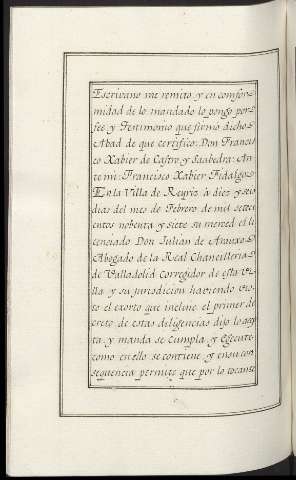 Escrivano me remito y en comfor-
midad de lo mandado lo pongo por
fee y Testimonio que firmo dicho
Abad de que certifico: Don Francis
co Xabier de Castro y Saabedra: An
te mi: Francisco Xabier Fidalgo
En la Villa de Reyriz à diez y seis
dias del mes de Febrero de mil sette
cientos nobenta y siete su merced el li
cenciado Don Julian de
Abogado de la Real Chancilleria
de Valladolid Corregidor de esta Vi-
lla y su jurisdicion haviendo vis-
to el exorto que incluie el primer de
creto de estas diligencias dijo lo azep
ta y manda se cumpla y Egecute
como en ello se contiene y en su con
sequencia permite que por lo tocante